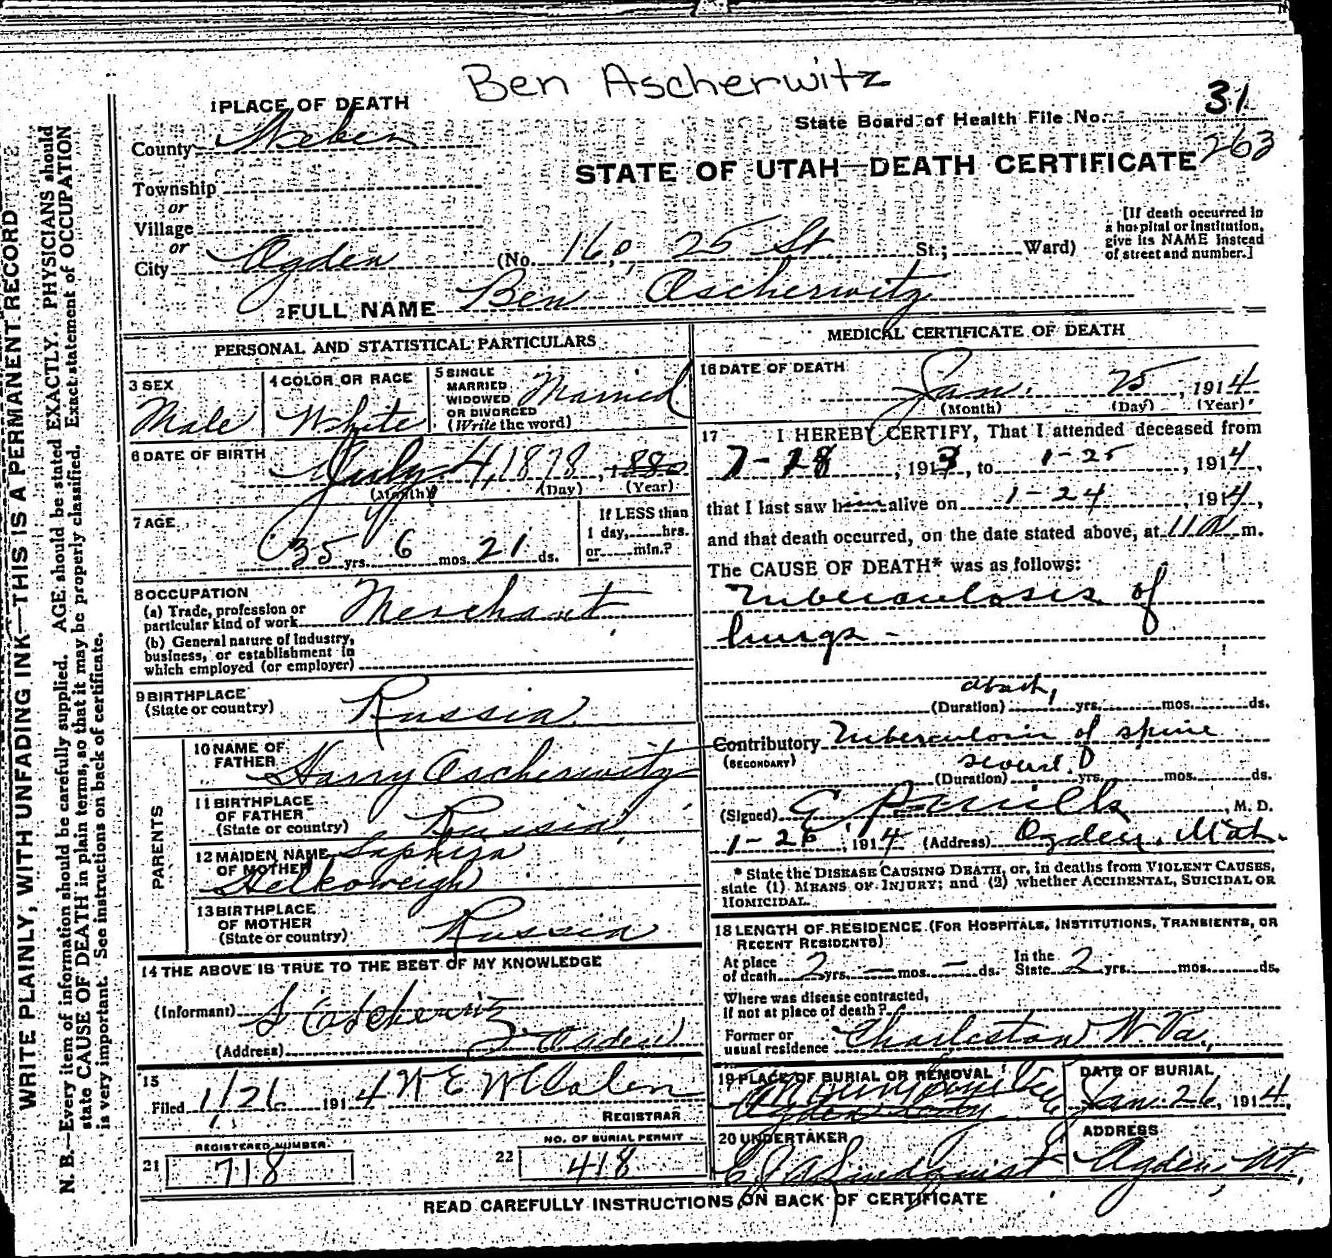 Ben Ascherwitz
31
263
1 PLACE OF DEATH
County Weber
State Board of Health File No.
STATE OF UTAH—DEATH CERTIFICATE
Township
or
Village
or
City Ogden (No. 160, 25 St. St.; Ward)
[If death occurred in a hospital or institution, give its NAME instead of street and number.]
2 FULL NAME Ben Ascherwitz
WRITE PLAINLY, WITH UNFADING INK—THIS IS A PERMANENT RECORD
N. B.—Every item of information should be carefully supplied. AGE should be stated EXACTLY. PHYSICIANS should
state CAUSE OF DEATH in plain terms, so that it may be properly classified. Exact statement of OCCUPATION
is very important. See instructions on back of certificate.
PERSONAL AND STATISTICAL PARTICULARS
3 SEX
Male
4 COLOR OR RACE
White
5 SINGLE
MARRIED
WIDOWED
OR DIVORCED
(Write the word)
Married
6 DATE OF BIRTH
July 4, 1878, 1880
(Month) (Day) (Year)
7 AGE
35 yrs. 6 mos. 21 ds.
If LESS than
1 day, hrs.
or min.?
8 OCCUPATION
(a) Trade, profession or
particular kind of work Merchant
(b) General nature of industry,
business, or establishment in
which employed (or employer)
9 BIRTHPLACE
(State or country) Russia
PARENTS
10 NAME OF
FATHER Harry Ascherwitz
11 BIRTHPLACE
OF FATHER
(State or country) Russia
12 MAIDEN NAME
OF MOTHER
13 BIRTHPLACE
OF MOTHER
(State or country) Russia
14 THE ABOVE IS TRUE TO THE BEST OF MY KNOWLEDGE
(Informant) S
(Address) Ogden
15
Filed 1/26 1914
REGISTRAR
REGISTERED NUMBER
21 718
NO. OF BURIAL PERMIT
22 418
MEDICAL CERTIFICATE OF DEATH
16 DATE OF DEATH
Jan. 25, 1914
(Month) (Day) (Year)
17 I HEREBY CERTIFY, That I attended deceased from
7-28, 1913, to 1-25, 1914,
that I last saw him alive on 1-24, 1914,
and that death occurred, on the date stated above, at 11 a m.
The CAUSE OF DEATH* was as follows:
Tuberculosis of
lungs -
about
(Duration) 1 yrs. mos. ds.
Contributory Tuberculosis of spine
(SECONDARY)
several
(Duration) yrs. mos. ds.
(Signed) M. D.
1-26, 1914 (Address) Ogden, Utah.
* State the DISEASE CAUSING DEATH, or, in deaths from VIOLENT CAUSES,
state (1) MEANS OF INJURY; and (2) whether ACCIDENTAL, SUICIDAL OR
HOMICIDAL.
18 LENGTH OF RESIDENCE (FOR HOSPITALS, INSTITUTIONS, TRANSIENTS, OR
RECENT RESIDENTS)
At place
of death 2 yrs. — mos. — ds.
In the
State 2 yrs. mos. ds.
Where was disease contracted,
if not at place of death?
Former or
usual residence Charleston W. Va.,
19 PLACE OF BURIAL OR REMOVAL
Ogden
DATE OF BURIAL
Jan. 26, 1914.
20 UNDERTAKER
Lindquist
ADDRESS
Ogden, Ut.
READ CAREFULLY INSTRUCTIONS ON BACK OF CERTIFICATE